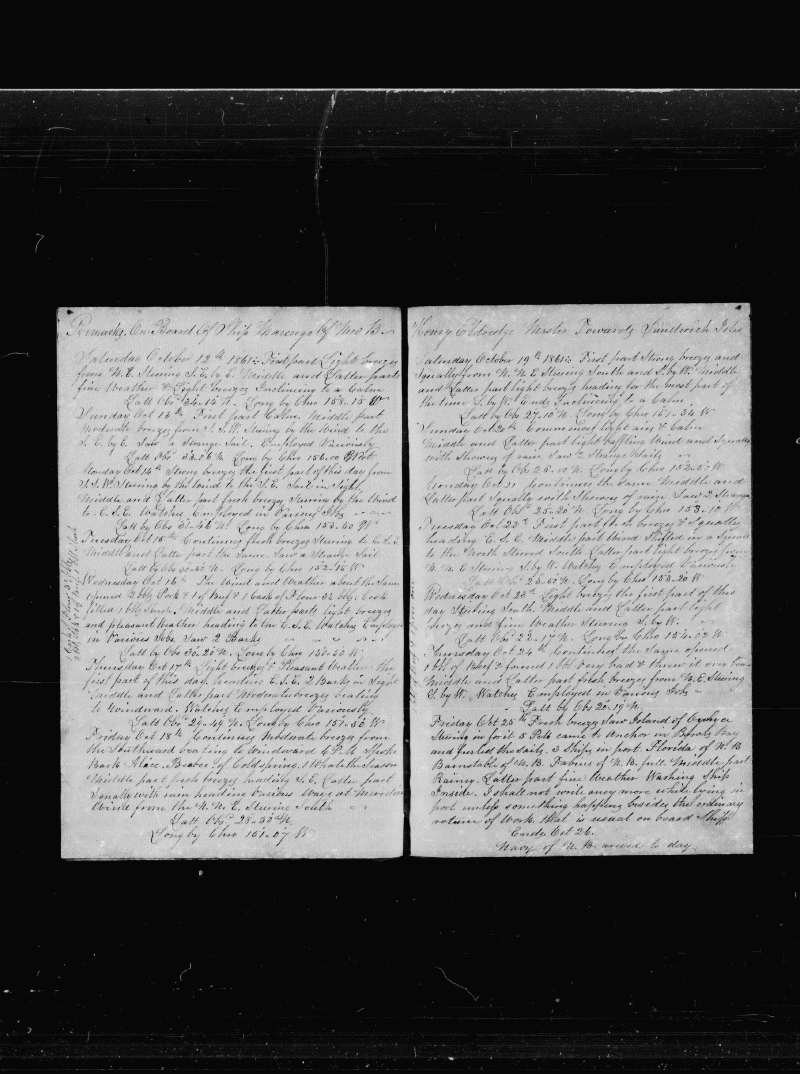 Remarks. On Board of Ship Marengo of New B.
Saturday October 12th 1861: First part Light breezes
from N.E. Steering S.E. by E. Middle and Latter parts
fine Weather & Light breezes Inclining to a Calm
Latt Obs 34-14 N. Long by Chro 158-15 W
Sunday Oct 13th First part Calm. Middle part
Moderate breezes from S.S.W. Steering by the Wind to the
S.E. by E. Saw a Strange Sail. Employed Variously
Latt by Obs N. Long by Chro 156.00 W
Monday Oct 14th Strong breezes the first part of this day from
S.S.W. Steering by the Wind to the S.E. Sail in Sight,
Middle and Latter part fresh breezes Steering by the Wind
to E.S.E. Watches Employed in Various Jobs
Latt by Obs 31-46 N. Long by Chro 153-50 W
Tuesday Oct 15th Continues fresh breezes Steering to E.S.E.
Middle and Latter part the Same Saw a Strange Sail
Latt by Obs N. Long by Chro 152-15 W
Wednesday Oct 16th The Wind and Weather about the Same
opened 2 bbls Pork & 1 of Beef & 1 Cask of Flour Cask
filled 1 Middle and Latter parts light breezes
and pleasant Weather heading to the E.S.E. Watches Employed
in Various Jobs Saw 2 Barks
Latt by Obs 30-20 N. Long by Chro 150-50 W
Thursday Oct 17th Light breezes & Pleasant Weather the
first part of this day, heading E.S.E. 2 Barks in Sight
Middle and Latter part Moderate breezes beating
to Windward. Watches employed Variously
Latt Obs 29-49 N. Long by Chro 151-50 W
Friday Oct 18th Continues Moderate breezes from
the Southward beating to Windward 4 P.M. Spoke
Bark Alice. Beebee of Coldspring. 1 Whale the Season
Middle part fresh breezes heading S.E. Latter part
Squally with rain heading Various Ways at Meridian
Wind from the N.N.E. Steering South
Latt Obs 28-30 N.
Long by Chro 151-07 W
Henry Eldredge Master Towards Sandwich Isles
Saturday October 19th 1861: First part Strong breezes and
Squally from N.N.E. Steering South and S. by W. Middle
and Latter part light breezes heading for the most part of
the time S. by W. Ends Inclining to a Calm
Latt by Obs 27-10 N. Long by Chro 151-34 W
Sunday Oct 20th Commences light airs & Calm
Middle and Latter part light baffling Wind and Squally
with Showers of rain Saw 2 Strange Sails
Latt by Obs 26-00 N. Long by Chro 152-50 W
Monday Oct 21 Continues the Same Middle and
Latter part Squally with Showers of rain Saw 2 Strange
Latt Obs 25-20 N. Long by Chro 153-10 W
Tuesday Oct 22nd First part breezes & Squally
heading E.S.E. Middle part Wind Shifted in a Squall
to the North Steered South Latter part light breezes from
N.N.E. Steering S. by W. Watches Employed Variously
Latt Obs 23-50 N. Long by Chro 153-20 W
Wednesday Oct 23rd Light breezes the first part of this
day Steering South. Middle and Latter part light
breezes and fine Weather Steering S. by W.
Latt by Obs 22-17 N. Long by Chro 154-02 W
Thursday Oct 24th Continues the Same opened
1 bbl of Beef & found 1 bbl very bad & threw it over board
Middle and Latter part fresh breezes from N.E. Steering
S. by W. Watches Employed in Various Jobs
Latt by Obs 20-19 N.
Friday Oct 25th Fresh breezes Saw Island of Owhyee
Steering in for it 5 P.M. came to Anchor in Bay
and furled the Sails, 3 Ships in port. Florida of N.B.
Barnstable of N.B. Fabius of N.B. full. Middle part
Rainy. Latter part fine Weather Washing Ship
Inside. I shall not write any more while lying in
port unless something happens besides the ordinary
rotine of Work that is usual on board Ship
Ends Oct 26.
Navy of N.B. arived to day